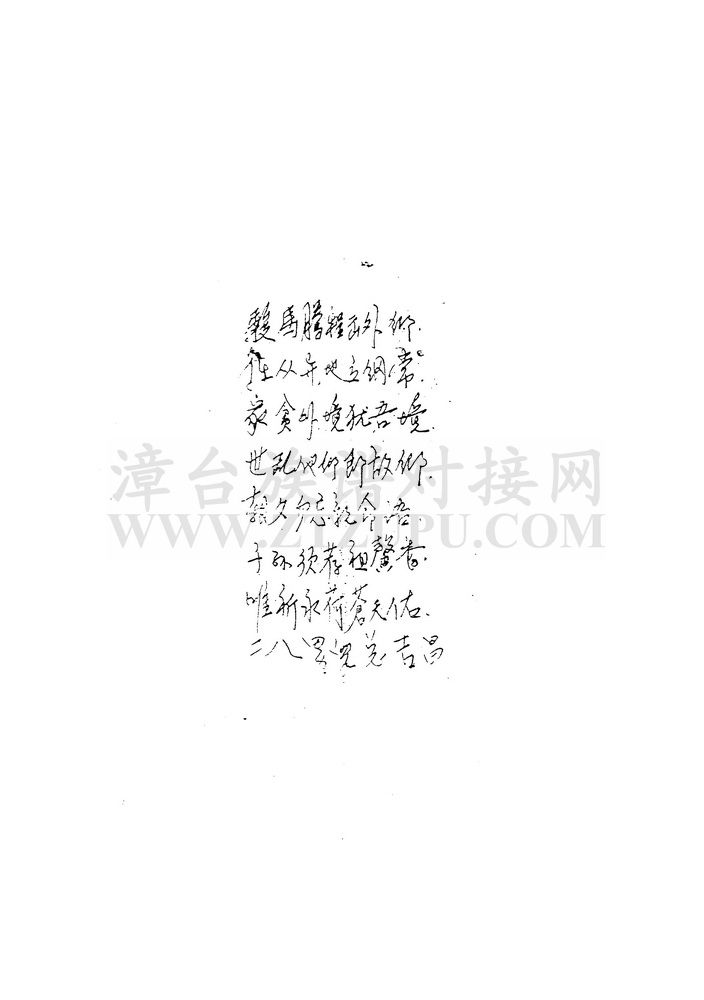 馬腾程出外鄉.
任从异地立纲常.
家贫外境犹吾境.
世乱他鄉即故鄉.
朝夕勿忘親命语.
子孙须荐祖馨香.
唯祈永荷蒼天佑.
二八男兒总吉昌
漳台族谱对接网
WWW.ZTZUPU.COM